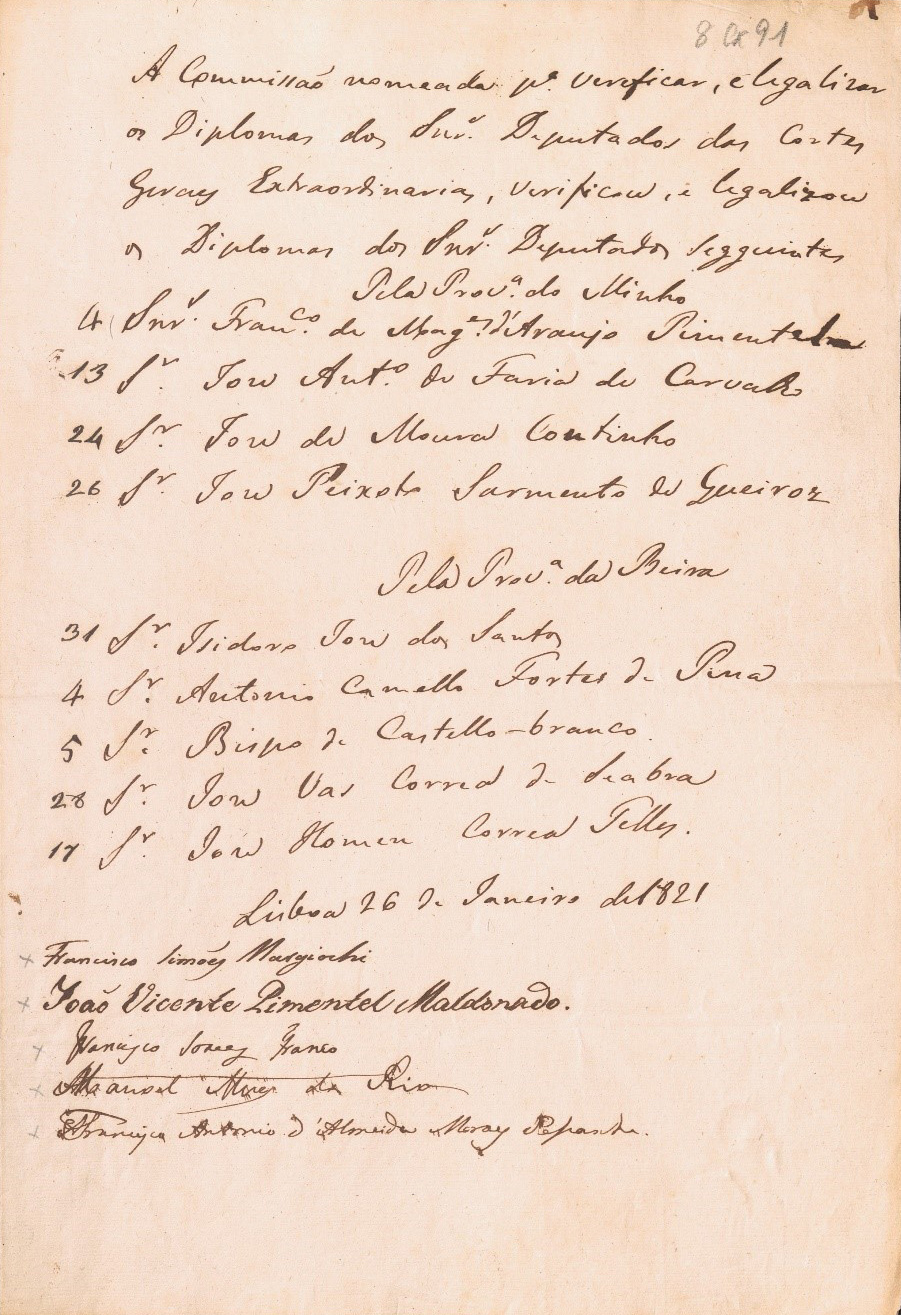 8 Cx 91
A Commissaõ nomeada pª. verificar, e legalizar
os Diplomas dos Snrs. Deputados das Cortes
Geraes Extraordinarias, verificou, e legalizou
os Diplomas dos Snrs. Deputados segguintes
Pela Provª. do Minho
4 Snr. Franco. de Mages. d'Araujo Pimentel
13 Sr. Jose Anto. de Faria de Carvalho
24 Sr. Jose de Moura Coutinho
26 Sr. Jose Peixoto Sarmento de Queiroz
Pela Provª. da Beira
31 Sr. Isidoro Jose dos Santos
4 Sr. Antonio Camello Fortes de Pina
5 Sr. Bispo de Castello-branco
28 Sr. Jose Vas Correa de Seabra
17 Sr. Jose Homem Correa Telles.
Lisboa 26 de Janeiro de 1821
Francisco Simões Margiochi
Joaõ Vicente Pimentel Maldonado.
Francisco Soares Franco
Manoel Alves do Rio
Francisco Antonio d'Almeida Moraes Pessanha.